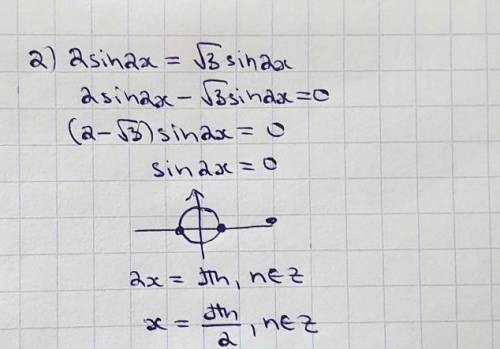 2) 2sin2x = √3 sin2x
2sin2x − √3sin2x = 0
(2 − √3)sin2x = 0
sin2x = 0
2x = πn, n∈Z
x = πn/2, n∈Z